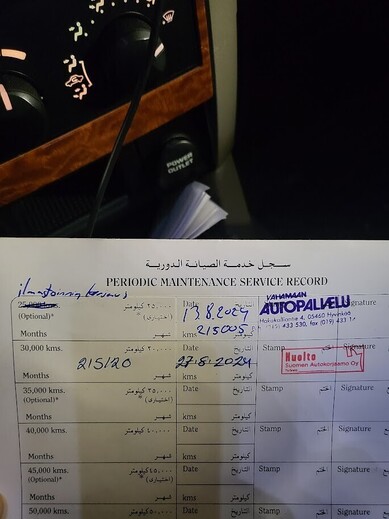 POWER
OUTLET
سجل خدمة الصيانة الدورية
PERIODIC MAINTENANCE SERVICE RECORD
25,000 kms. ٢٥,٠٠٠ كيلومتر Date 13.8.2024 التاريخ VAHAMAAN
(Optional)* (اختياري)* 215005 AUTOPALVELU
05460 Hyvinkää
433 530, fax (019) 433
Months شهر kms كيلومتر
30,000 kms. ٣٠,٠٠٠ كيلومتر Date التاريخ Stamp الختم Signature
215120 27.8.2024 Huolto
Suomen Autokonsermo Oy
Months شهر kms كيلومتر
35,000 kms. ٣٥,٠٠٠ كيلومتر Date التاريخ Stamp الختم Signature
(Optional)* (اختياري)*
Months شهر kms كيلومتر
40,000 kms. ٤٠,٠٠٠ كيلومتر Date التاريخ Stamp الختم Signature
Months شهر kms كيلومتر
45,000 kms. ٤٥,٠٠٠ كيلومتر Date التاريخ Stamp الختم Signature
(Optional)* (اختياري)*
Months شهر kms كيلومتر
50,000 kms. ٥٠,٠٠٠ كيلومتر Date التاريخ Stamp الختم Signature